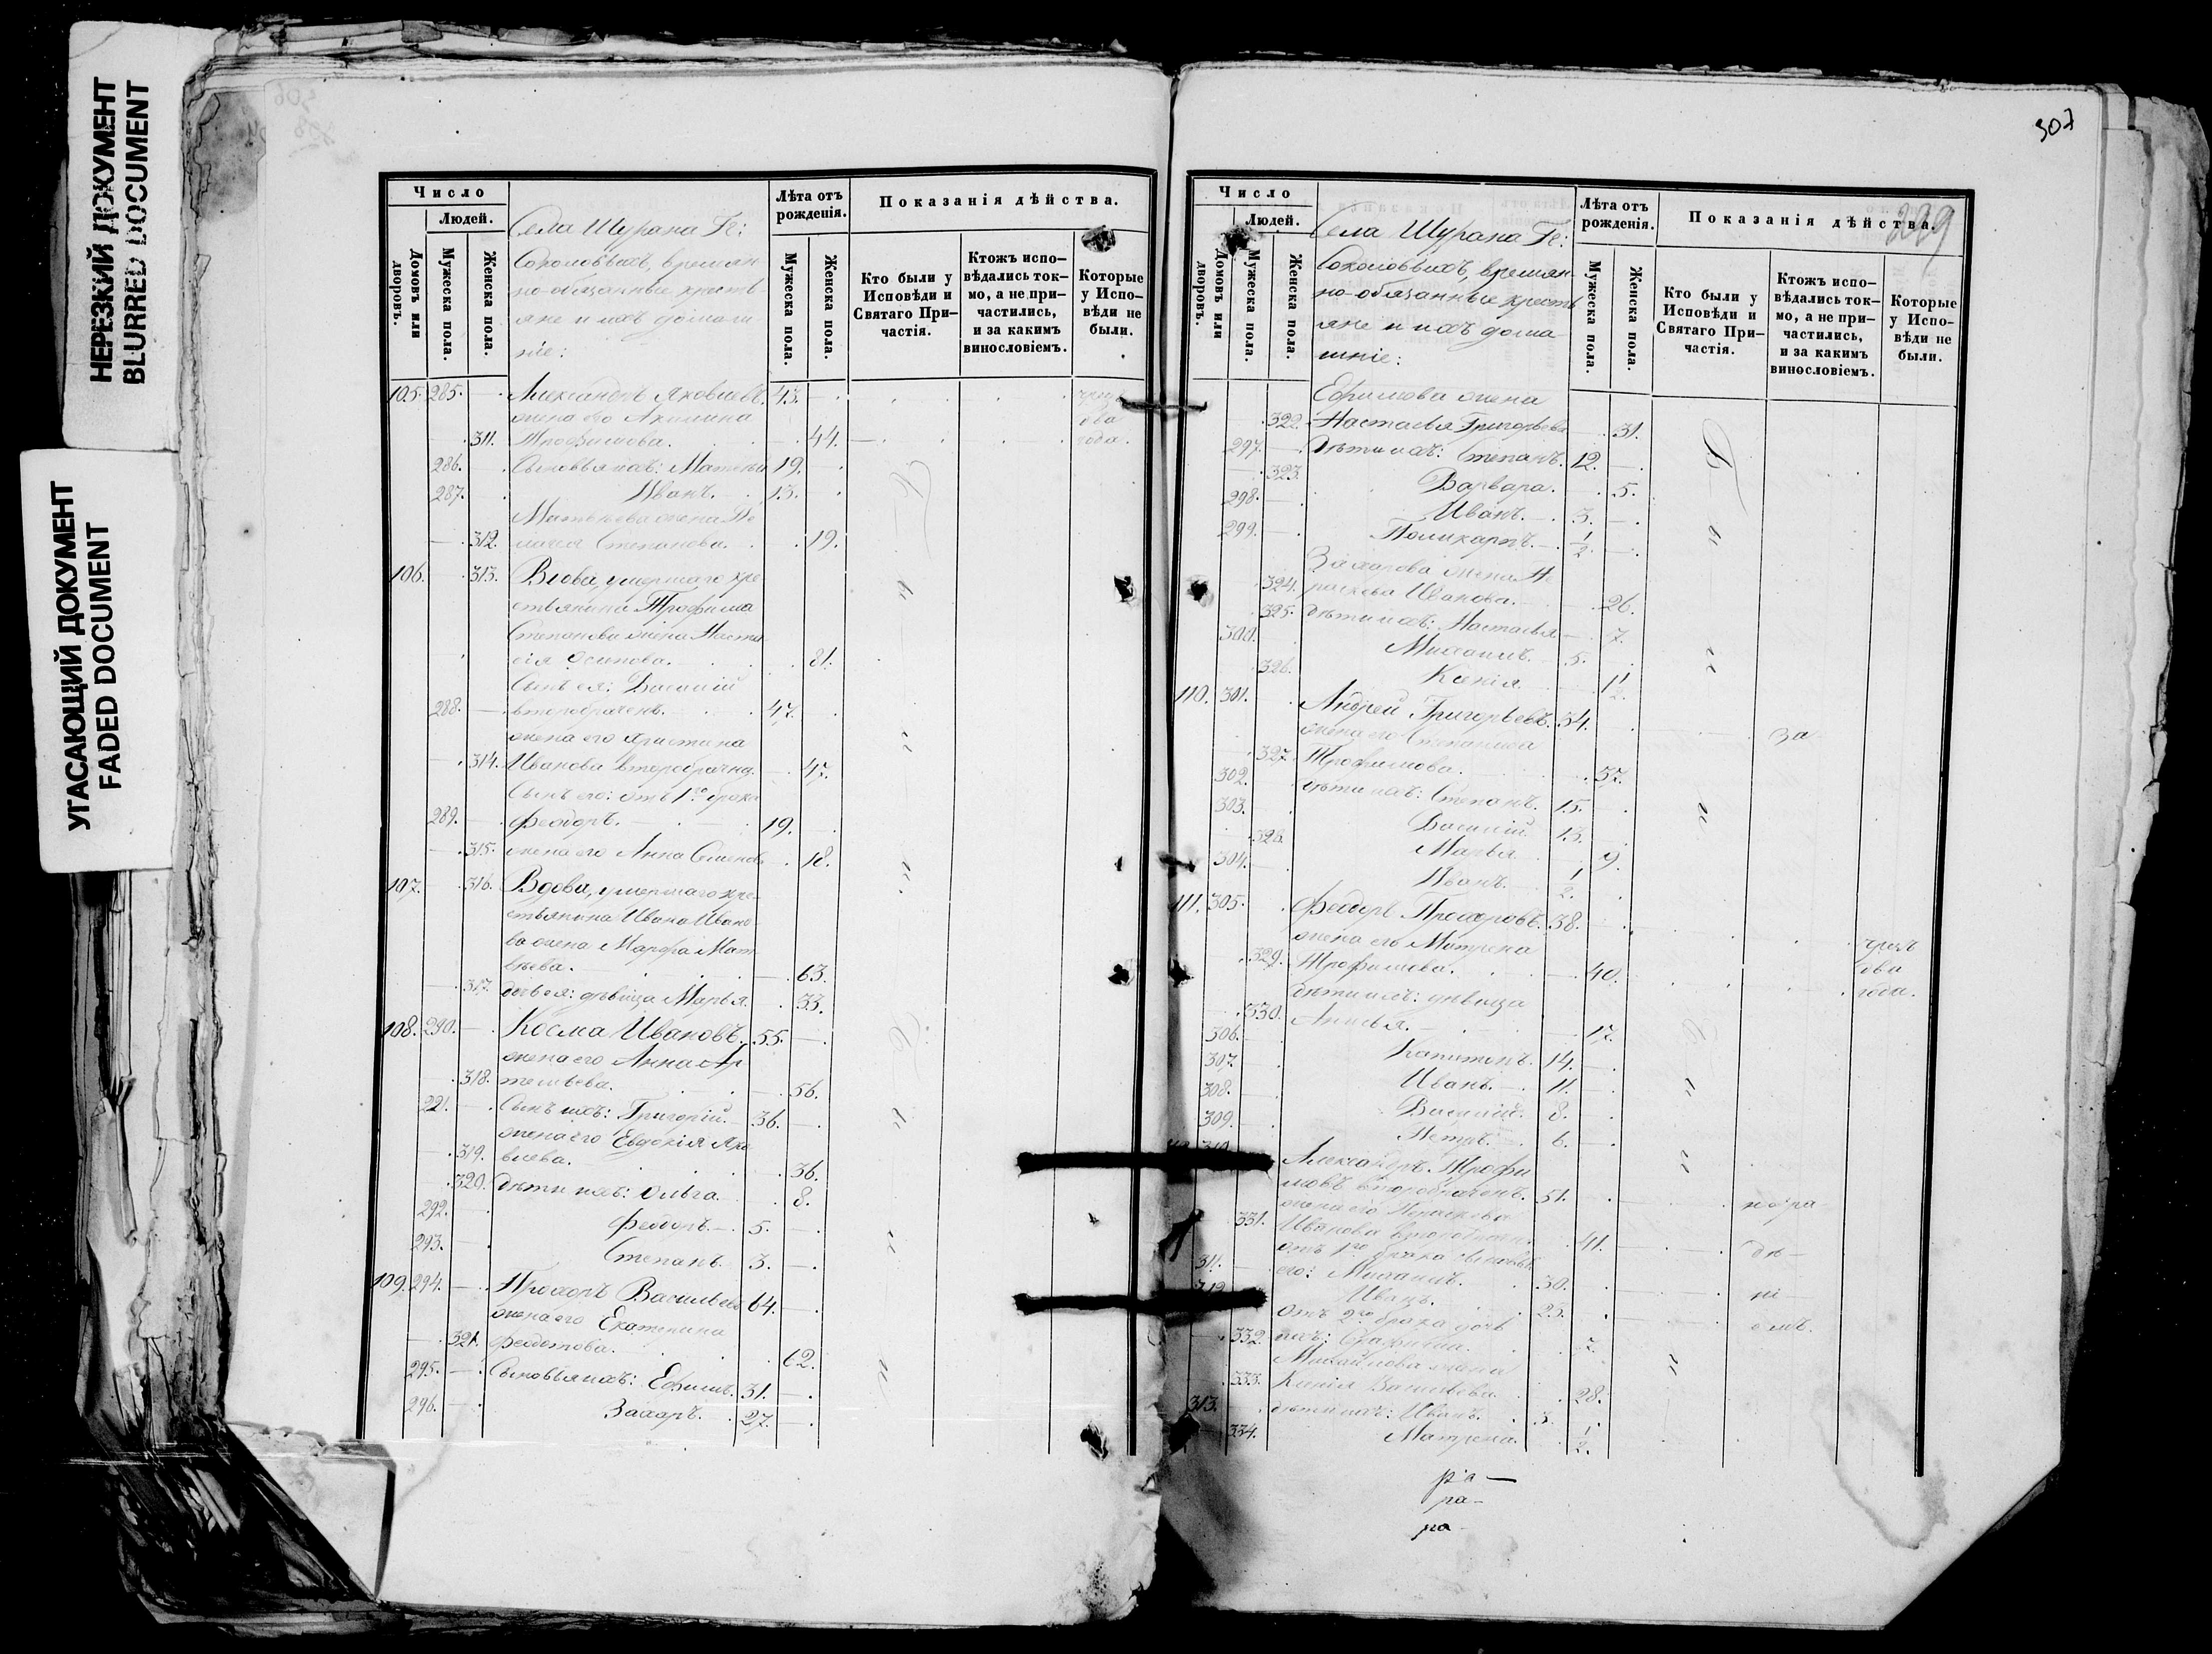 НЕРЕЗКИЙ ДОКУМЕНТ
BLURRED DOCUMENT
УГАСАЮЩИЙ ДОКУМЕНТ
FADED DOCUMENT
Число
Людей.
Домовъ или дворовъ.
Мужеска пола.
Женска пола.
Села Шурана Гг:
Соколовыхъ, времян
но-обязанные кресть
яне и ихъ домаш
ніе:
Лѣта отъ рожденія.
Мужеска пола.
Женска пола.
Показанія дѣйства.
Кто были у Исповѣди и Святаго При-частія.
Ктожъ испо-вѣдались ток-мо, а не при-частились, и за какимъ винословіемъ.
Которые у Испо-вѣди не были.
105. 285. Александръ Яковлевъ. 43.
жена его Акилина два
311. Трофимова. 44. года.
286. Сыновья ихъ: Матвѣй 19.
287. Иванъ. 13.
Матвѣева жена Пе
312. лагея Степанова. 19.
106. 313. Вдова, умершаго кре
стьянина Трофима
Степанова жена Наста
сія Осипова. 81.
Сынъ ея: Василій
288. второбраченъ. 47.
жена его Христина
314. Иванова второбрачна. 47.
Сынъ его: отъ 1го брака
289. Феодоръ. 19.
315. жена его Анна Семенова 18.
107. 316. Вдова, умершаго кре
стьянина Ивана Ивано
ва жена Марфа Мат
вѣева. 63.
317. дочь ея: дѣвица Марья. 33.
108. 290. Косма Ивановъ. 55.
жена его Анна Ар
318. темьева. 56.
221. Сынъ ихъ: Григорій. 36.
жена его Евдокія Яко
319. влева. 36.
320. дѣти ихъ: Ольга. 8.
292. Феодоръ. 5.
293. Степанъ. 3.
109. 294. Прохоръ Васильевъ 64.
жена его Екатерина
321. Феодотова. 62.
295. Сыновья ихъ: Ефимъ. 31.
296. Захаръ. 27.
307
299
Число
Людей.
Домовъ или дворовъ.
Мужеска пола.
Женска пола.
Села Шурана Гг:
Соколовыхъ, времян
но-обязанные кресть
яне и ихъ дома
шніе:
Лѣта отъ рожденія.
Мужеска пола.
Женска пола.
Показанія дѣйства.
Кто были у Исповѣди и Святаго При-частія.
Ктожъ испо-вѣдались ток-мо, а не при-частились, и за какимъ винословіемъ.
Которые у Испо-вѣди не были.
Ефимова жена
322. Настасья Григорьева 31.
297. дѣти ихъ: Степанъ. 12.
323. Варвара. 5.
298. Иванъ. 3.
299. Поликарпъ. 1/2.
Захарова жена П
324. раскева Иванова. 26.
325. дѣти ихъ: Настасья 7.
300. Михаилъ. 5.
326. Ксенія 1 1/2.
110. 301. Андрей Григорьевъ. 34.
жена его Степанида за
327. Трофимова. 37.
302. дѣти ихъ: Степанъ. 15.
303. Василій 13.
328. Марья 9.
304. Иванъ. 1/2.
111. 305. Феодоръ Прохоровъ. 38.
жена его Матрена чрезъ
329. Трофимова. 40. два
дѣти ихъ: дѣвица года.
330. Анисья. 17.
306. Капитонъ. 14.
307. Иванъ. 11.
308. Василій. 8.
309. Петръ. 6.
310. Александръ Трофи
мовъ второбраченъ. 51. нера
жена его Параскева
331. Иванова второбрачна 41. дѣ-
отъ 1го брака сыновья
311. его: Михаилъ. 30. ні
312. Иванъ. 23. емъ.
отъ 2го брака дочь
332. ихъ: 7.
Михайлова жена
333. Ксенія Васильева 28.
313. дѣти ихъ: Иванъ. 3.
334. Матрена. 1/2.
ра-
ра-
ра-